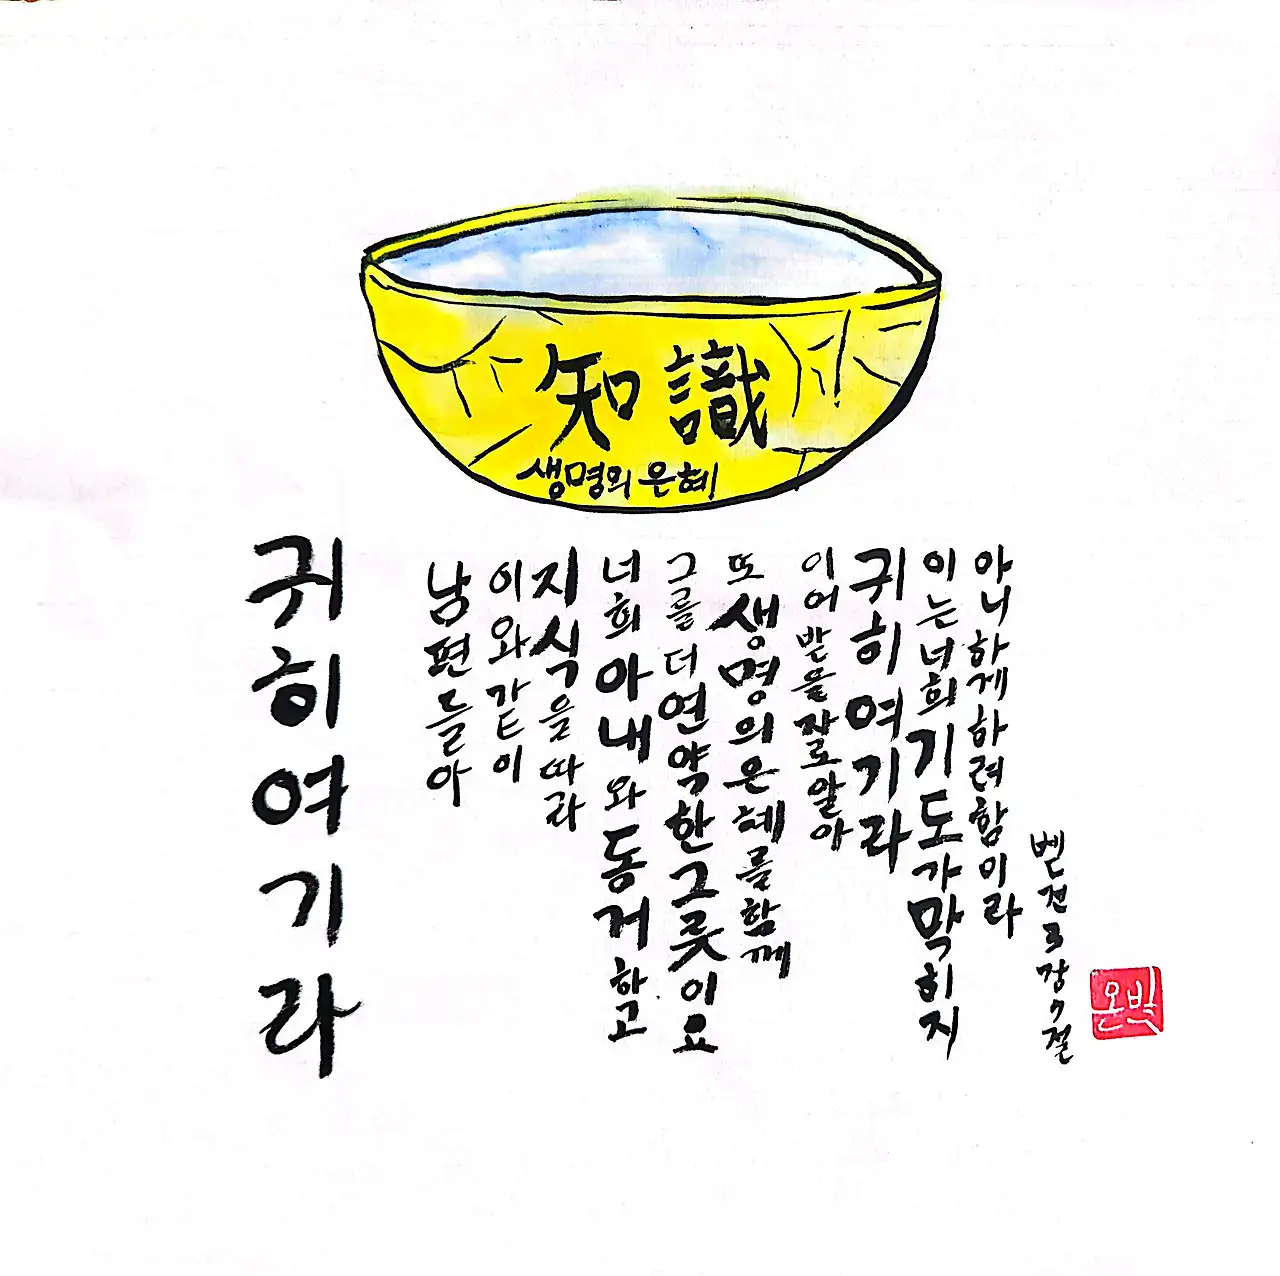 知識
생명의 은혜
귀히여기라
남편들아
이와같이
지식을따라
너희아내와동거하고
그를더연약한그릇이요
또생명의은혜를함께
이어받을자로알아
귀히여기라
이는너희기도가막히지
아니하게하려함이라
벧전3장7절
온빛